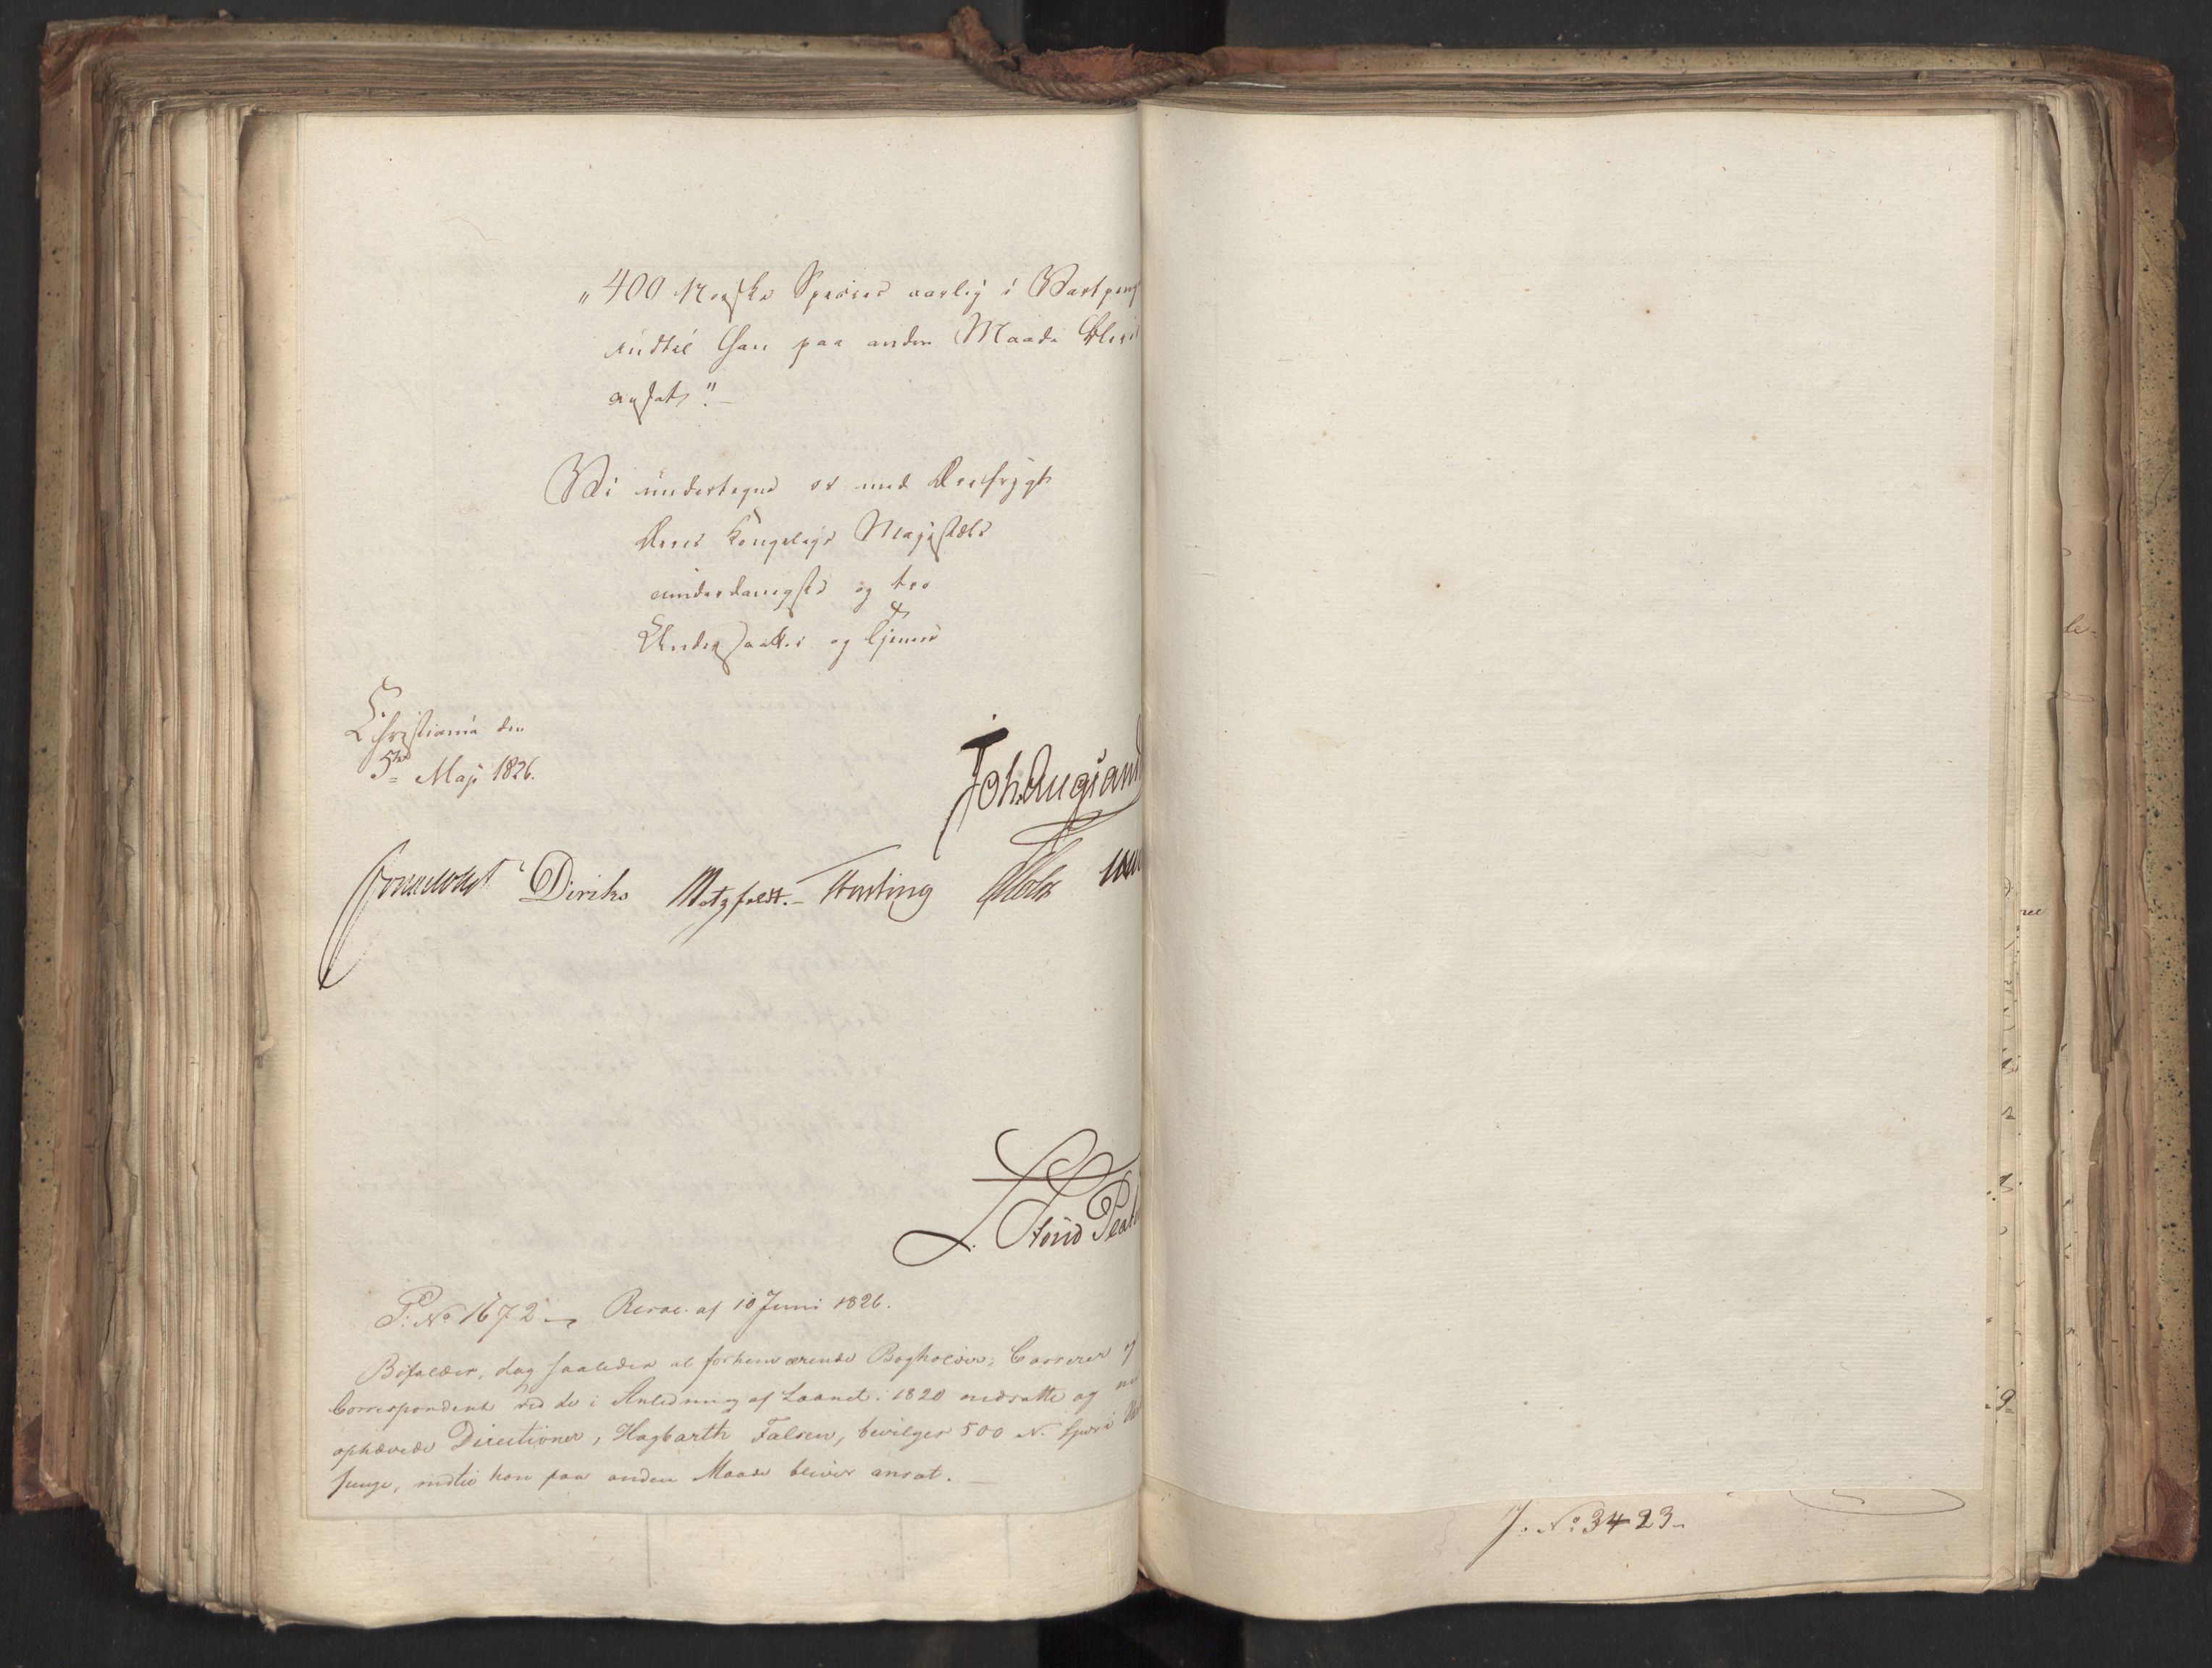 "400 Norske Species aarlig i Vartpeng
indtil han paa anden Maade bliver
ansat".-
Vi undertegne os med Ærefrygt
Deres Kongelige Majestæts
underdanigste og troe
Undersaatter og Tjenere
Christiania den
5te Maji 1826.
Joh. Aug. Sand
Sommerhielm Diriks Motzfeldt.- Fasting
L. Stoud Plat
P: No 1672 Resol. af 10 Juni 1826.
Bifaldes, dog saaledes at forhenværende Bogholder, Casserer og
Correspondent ved de i Anledning af Laanet i 1820 nedsatte og nu
ophævede Directioner, Hagbarth Falsen, bevilges 500 N. Spd i Vart
penge, indtil han paa anden Maade bliver ansat.
J. No 3423-